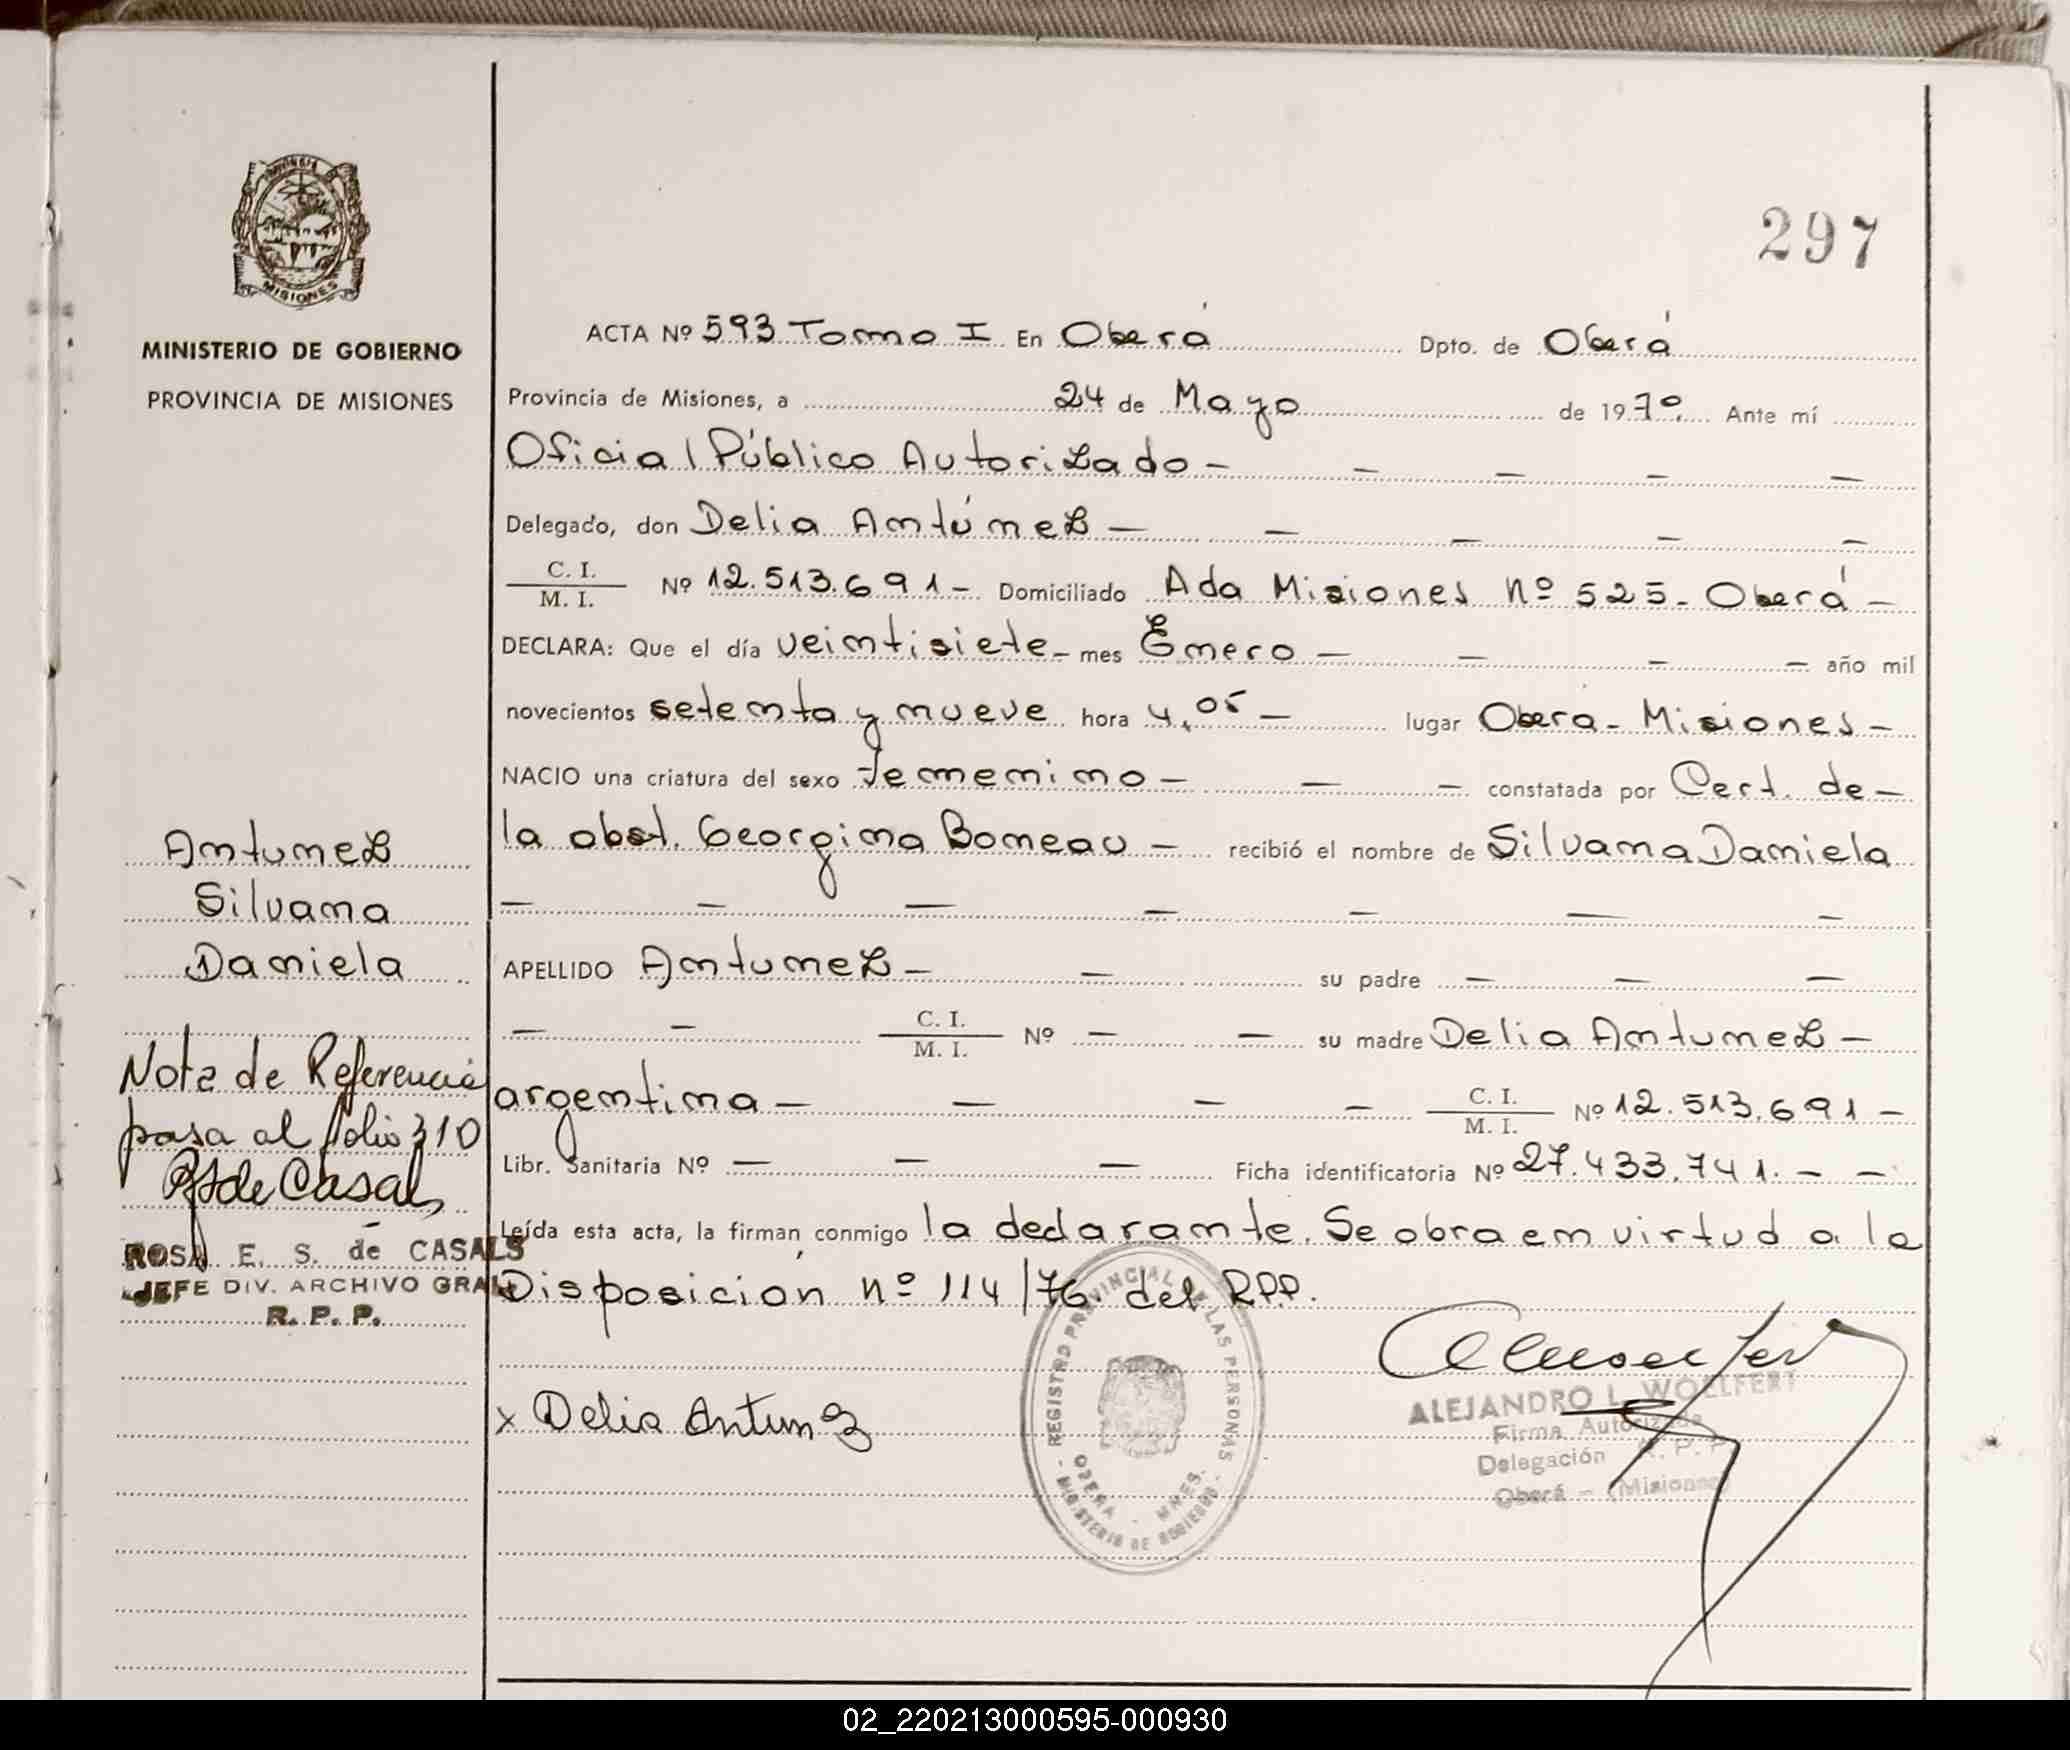 PROVINCIA
MISIONES
MINISTERIO DE GOBIERNO
PROVINCIA DE MISIONES
297
ACTA Nº 593 Tomo I En Oberá Dpto. de Oberá
Provincia de Misiones, a 24 de Mayo de 1979. Ante mí
Oficial Público Autorizado - - - - -
Delegado, don Delia Antúnez - - - - -
C. I.
M. I. Nº 12.513.691 - Domiciliado Ada Misiones Nº 525 - Oberá -
DECLARA: Que el día veintisiete - mes Enero - - - - año mil
novecientos setenta y nueve hora 4,05 - lugar Oberá - Misiones -
NACIO una criatura del sexo femenino - - - constatada por Cert. de -
la obst. Georgina Boneau - recibió el nombre de Silvana Daniela
- - - - - - -
APELLIDO Antunez - - su padre - - -
- - C. I.
M. I. Nº - - su madre Delia Antunez -
argentina - - - - C. I.
M. I. Nº 12.513.691 -
Libr. Sanitaria Nº - - - Ficha identificatoria Nº 27.433.741. - -
Leída esta acta, la firman conmigo la declarante. Se obra en virtud a la
Disposición nº 114/76. del RPP.
x Delia Antunez
REGISTRO PROVINCIAL DE LAS PERSONAS
OBERA - MNES.
MINISTERIO DE GOBIERNO
ALEJANDRO L. WOELFERT
Firma Autorizada
Delegación R. P. P.
Oberá - (Misiones)
Antunez
Silvana
Daniela
Nota de Referencia
pasa al folio 310
RSde Casals
ROSA E. S. de CASALS
JEFE DIV. ARCHIVO GRAL
R. P. P.
02_220213000595-000930